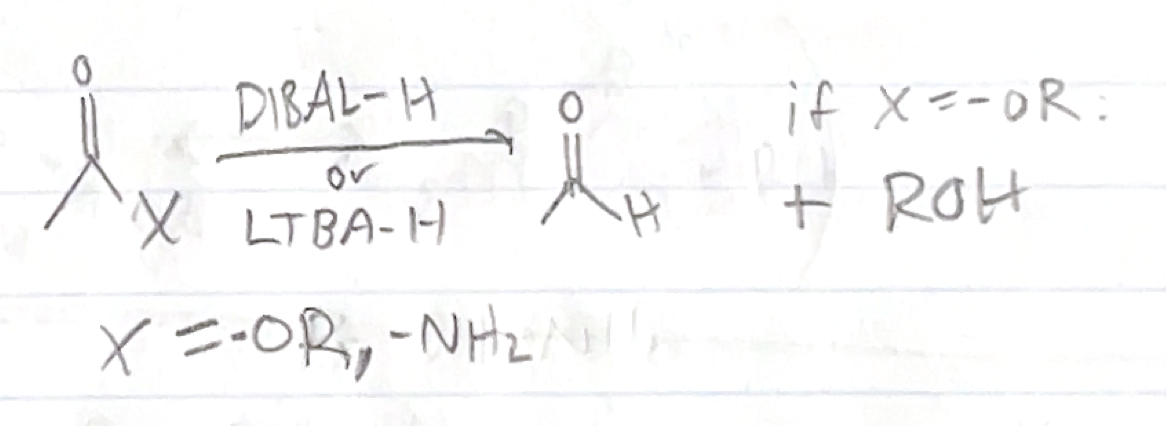 O
DIBAL-H
or
LTBA-H
X
O
H
if X=-OR:
+ ROH
X =-OR, -NH2